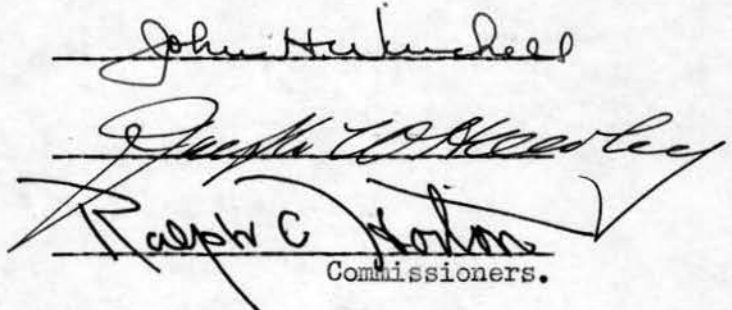 John H. Winchell
Joseph W. Hawley
Ralph C. Horton
Commissioners.